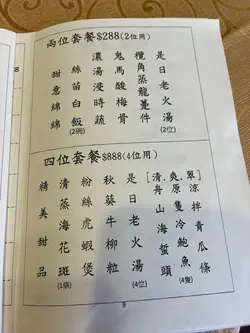 兩位套餐$288(2位用)
是日老火湯(2位)
欖角蒸龍躉件
鬼馬酸梅骨
濃湯浸時蔬
絲苗白飯(2碗)
甜意綿綿
四位套餐$888(4位用)
是日老火湯(4位)
[清,爽,翠]
舟山海蜇頭
原隻冷鮑魚(4隻)
涼拌青瓜條
秋葵牛柳粒
粉絲虎蝦煲
清蒸海花斑
精美甜品
9